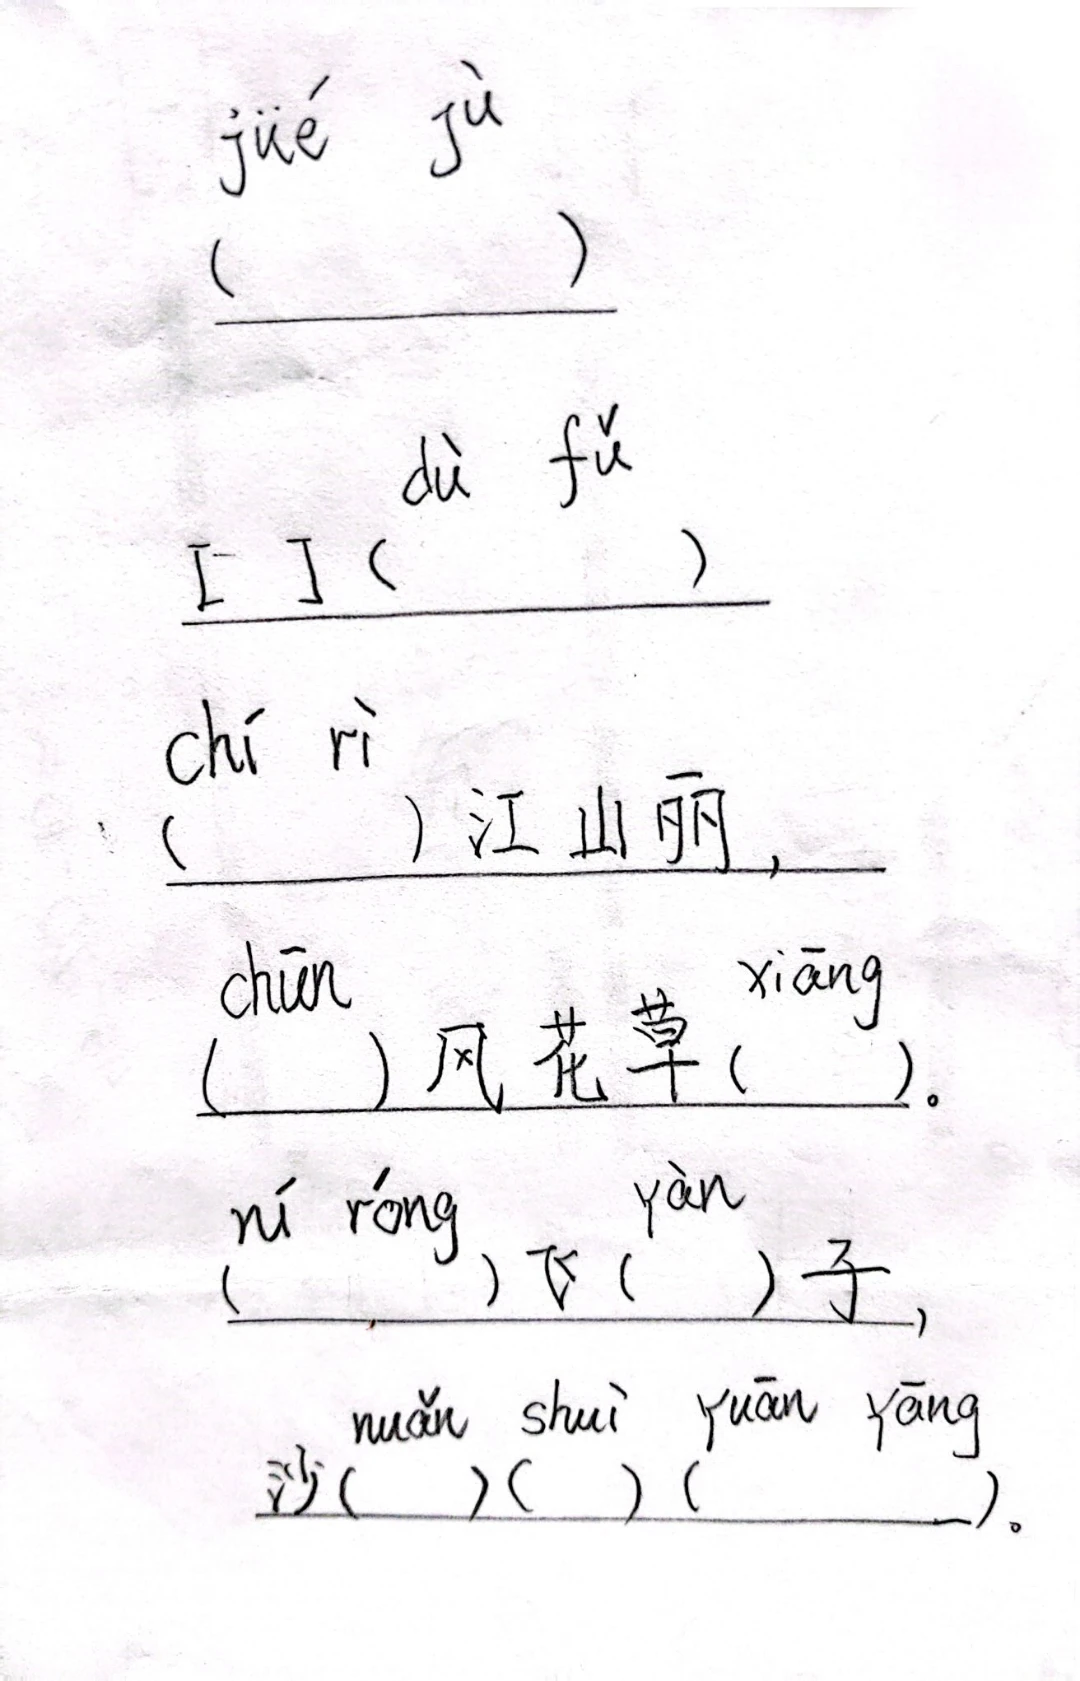 jüé jù
( )
dù fǔ
[ ] ( )
chí rì
( ) 江山丽,
chūn xiāng
( ) 风花草 ( )。
ní róng yàn
( ) 飞 ( ) 子,
nuǎn shuì yuān yāng
沙 ( ) ( ) ( )。